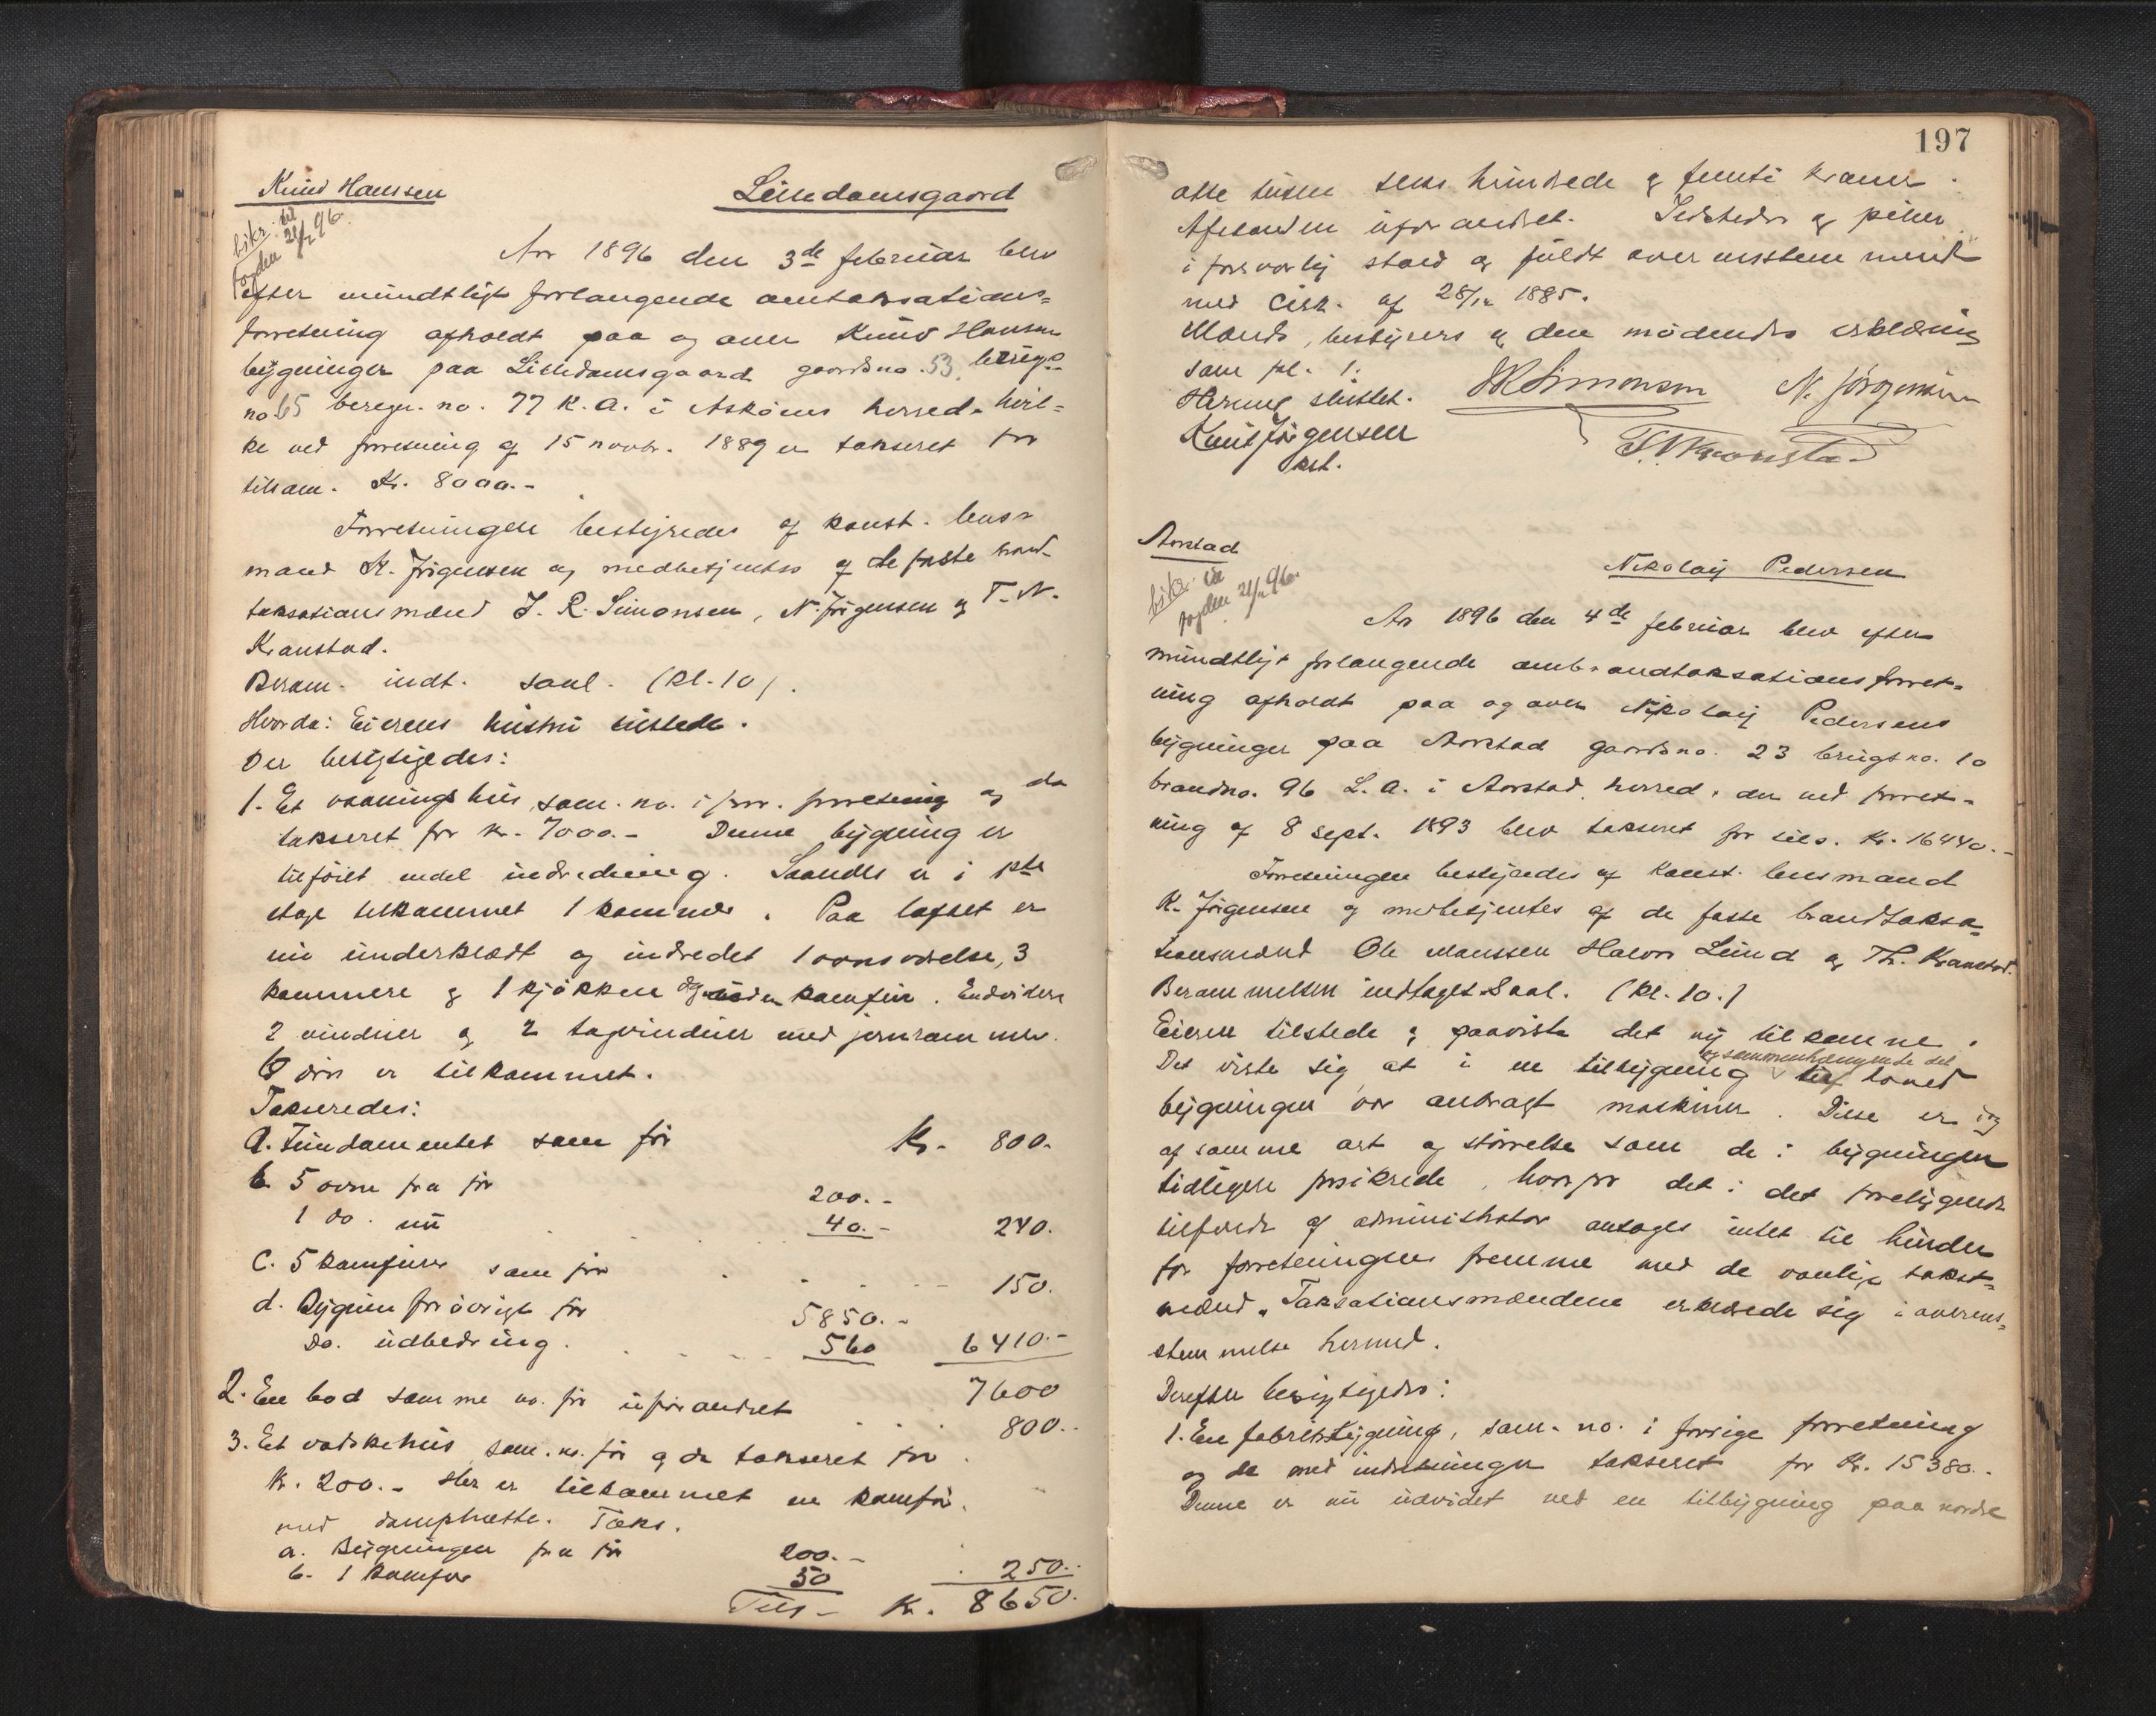 Knud Hanssen
Lundamsgaard
bikr. til
fogden 21/2 96.
Aar 1896 den 3de februar blev
efter mundtligt forlangende omtaksations-
forretning afholdt paa og over Knud Hansens
bygninger paa Lundamsgaard gaardsno. 53, brugs-
no. 65 beregn. no. 77 K. a. i Askøens herred, hvil-
ke ved forretning af 15 novbr. 1889 er takseret for
tilsam. Kr. 8000.-
Forretningen bestyredes af konst. lens-
mand K. Jørgensen og medbetjentes af de faste brand-
taksationsmænd J. R. Simonsen, N. Jørgensen og T. N.
Kronstad.
Beram. indt. saal. (kl. 10).
Hvorda: Eierens hustru tilstede.
Der besigtigedes:
1. Et vaaningshus, sam. no. i forr. forretning og da
takseret for kr. 7000.- Denne bygning er
tilføiet endel indredning. Saaledes er i 1ste
etage tilkommet 1 kammer. Paa loftet er
nu underklædt og indredet 1 ovnsværelse, 3
kammere og 1 kjøkken uden komfur. Endvidere
2 vinduer og 2 tagvinduer med jernrammer.
6 døre er tilkommet.
Takseredes:
a. Fundamentet som før Kr. 800.
b. 5 ovne fra før 200.-
1 do. nu 40.- 240.
c. 5 komfurer som før 150.
d. Bygnin forøvrigt før 5850.-
Do. udbedring. 560 6410.-
7600
2. En bod samme no. før uforandret 800.-
3. Et vadskehus, sam. no. før og da takseret for
kr. 200.- Her er tilkommet en komfur
med damphætte. Taks.
a. Bygningen fra før 200.-
b. 1 komfur 50 250.-
Tils. Kr. 8650.-
197
otte tusen seks hundrede og femti kroner.
Afstanden uforandret. Ildsteder og piber
i forsvarlig stand og fuldt overensstemmende
med Cirk. af 28/12 1885.
Mænds, bestyrers og den mødendes erklæring
som fol. 1.
Herme sluttet.
JRSimonsen N. Jørgensen
Knut Jørgensen
kst.
T. N. Kronstad
Aarstad
Nikolay Pedersen
bikr. til
fogden 21/2 96.
Aar 1896 den 4de februar blev efter
mundtligt forlangende ombrandtaksationsforret-
ning afholdt paa og over Nikolay Pedersens
bygninger paa Aarstad gaardsno. 23 brugsno. 10
brandno. 96 L. a. i Aarstad herred, der ved forret-
ning af 8 sept. 1893 blev takseret for tils. Kr. 16440.-
Forretningen bestyredes af konst. lensmand
K. Jørgensen og medbetjentes af de faste brandtaksa-
tionsmænd Ole Monssen Halvor Lund og Th. Kronstad.
Berammelsen indtaget saal. (kl. 10.)
Eieren tilstede og paaviste det ny tilkomne.
Det viste sig at i en tilbygning til hoved
og sammenhængende del
bygningen var anbragt maskiner. Disse er dog
af samme art og størrelse som de i bygningen
tidligere forsikrede, hvorfor det i det foreliggende
tilfælde af administrator antages intet til hinder
for forretningens fremme med de vanlige takst-
mænd. Taksationsmændene erklærede sig i overens-
stemmelse hermed.
Derefter besigtigedes:
1. En fabrikbygning, sam. no. i forrige forretning
og da med indretninger takseret for Kr. 15380.-
Denne er nu udvidet ved en tilbygning paa nordre